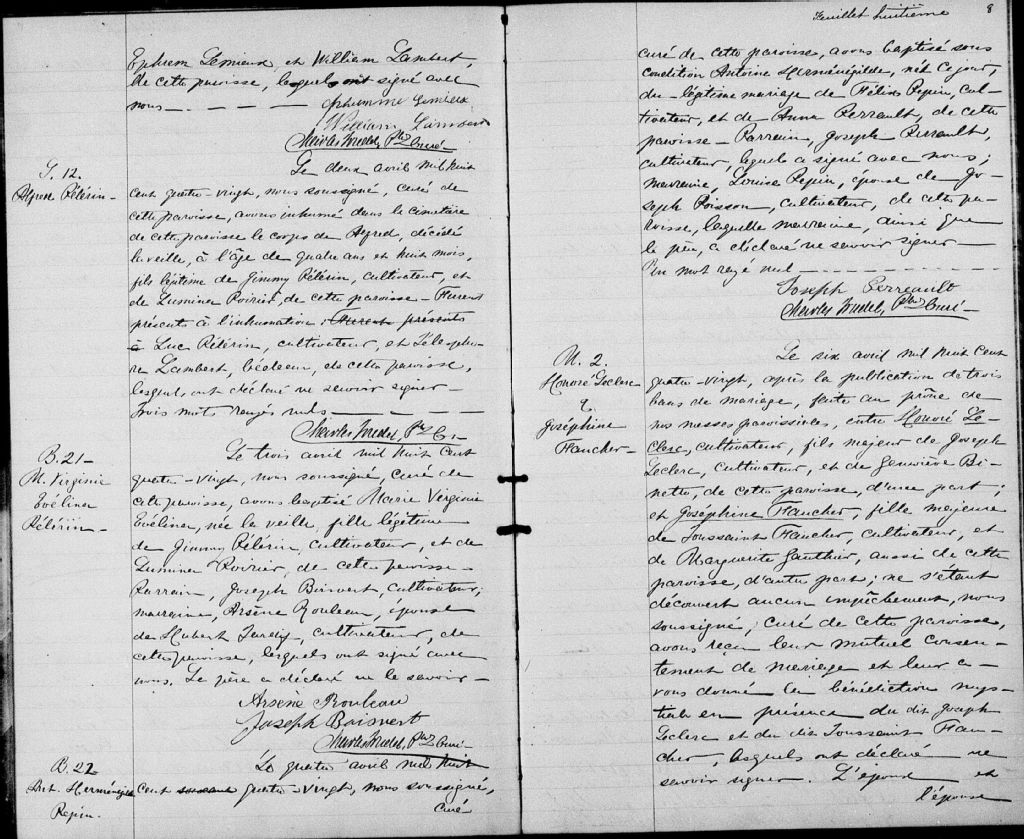 Ephrem Lemieux, et William Lambert,
de cette paroisse, lesquels ont signé avec
nous — — — — —
Lemieux
William Lambert
Ptre Curé
S. 12.
Alfred Pélerin —
Le deux avril mil huit
cent quatre-vingt, nous soussigné, curé de
cette paroisse, avons inhumé dans le cimetière
de cette paroisse le corps de Alfred, décédé
la veille, à l'âge de quatre ans et huit mois,
fils légitime de Jimmy Pélerin, cultivateur, et
de Lumina Poirier, de cette paroisse — Furent
présents à l'inhumation : Furent présents
à Luc Pélerin, cultivateur, et Télespho-
re Lambert, bédeau, de cette paroisse,
lesquels ont déclaré ne savoir signer —
Trois mots rayés nuls — — — —
Ptre C. —
B. 21 —
M. Virginie
Evélina
Pélerin —
Le trois avril mil huit cent
quatre-vingt, nous soussigné, curé de
cette paroisse, avons baptisé Marie Virginie
Evélina, née la veille, fille légitime
de Jimmy Pélerin, cultivateur, et de
Lumina Poirier, de cette paroisse —
Parrain, Joseph Boisvert, cultivateur;
marraine, Arsène Rouleau, épouse
de Hubert Tardif, cultivateur, de
cette paroisse, lesquels ont signé avec
nous. Le père a déclaré ne le savoir —
Arsène Rouleau
Joseph Boisvert
Ptre Curé —
B. 22
Ant. Herménégilde
Pepin.
Le quatre avril mil huit
cent quatre-vingt, nous soussigné,
curé
Feuillet huitième 8
curé de cette paroisse, avons baptisé sous
condition Antoine Herménégilde, né ce jour,
du légitime mariage de Félix Pepin, cul-
tivateur, et de Anna Perrault, de cette
paroisse — Parrain, Joseph Perrault,
cultivateur, lequel a signé avec nous;
marraine, Louise Pepin, épouse de Jo-
seph Poisson, cultivateur, de cette pa-
roisse, laquelle marraine, ainsi que
le père, a déclaré ne savoir signer —
Un mot rayé nul — — — — —
Joseph Perreault
Ptre Curé —
M. 2.
Honoré Leclerc
&
Joséphine
Faucher —
Le six avril mil huit cent
quatre-vingt, après la publication de trois
bans de mariage, faite au prône de
nos messes paroissiales, entre Honoré Le-
clerc, cultivateur, fils majeur de Joseph
Leclerc, cultivateur, et de Geneviève Bi-
nette, de cette paroisse, d'une part;
et Joséphine Faucher, fille majeure
de Toussaint Faucher, cultivateur, et
de Marguerite Gauthier, aussi de cette
paroisse, d'autre part; ne s'étant
découvert aucun empêchement, nous
soussigné, curé de cette paroisse,
avons reçu leur mutuel consen-
tement de mariage et leur a-
vons donné la bénédiction nup-
tiale en présence du dit Joseph
Leclerc et du dit Toussaint Fau-
cher, lesquels ont déclaré ne
savoir signer. L'époux et
l'épouse